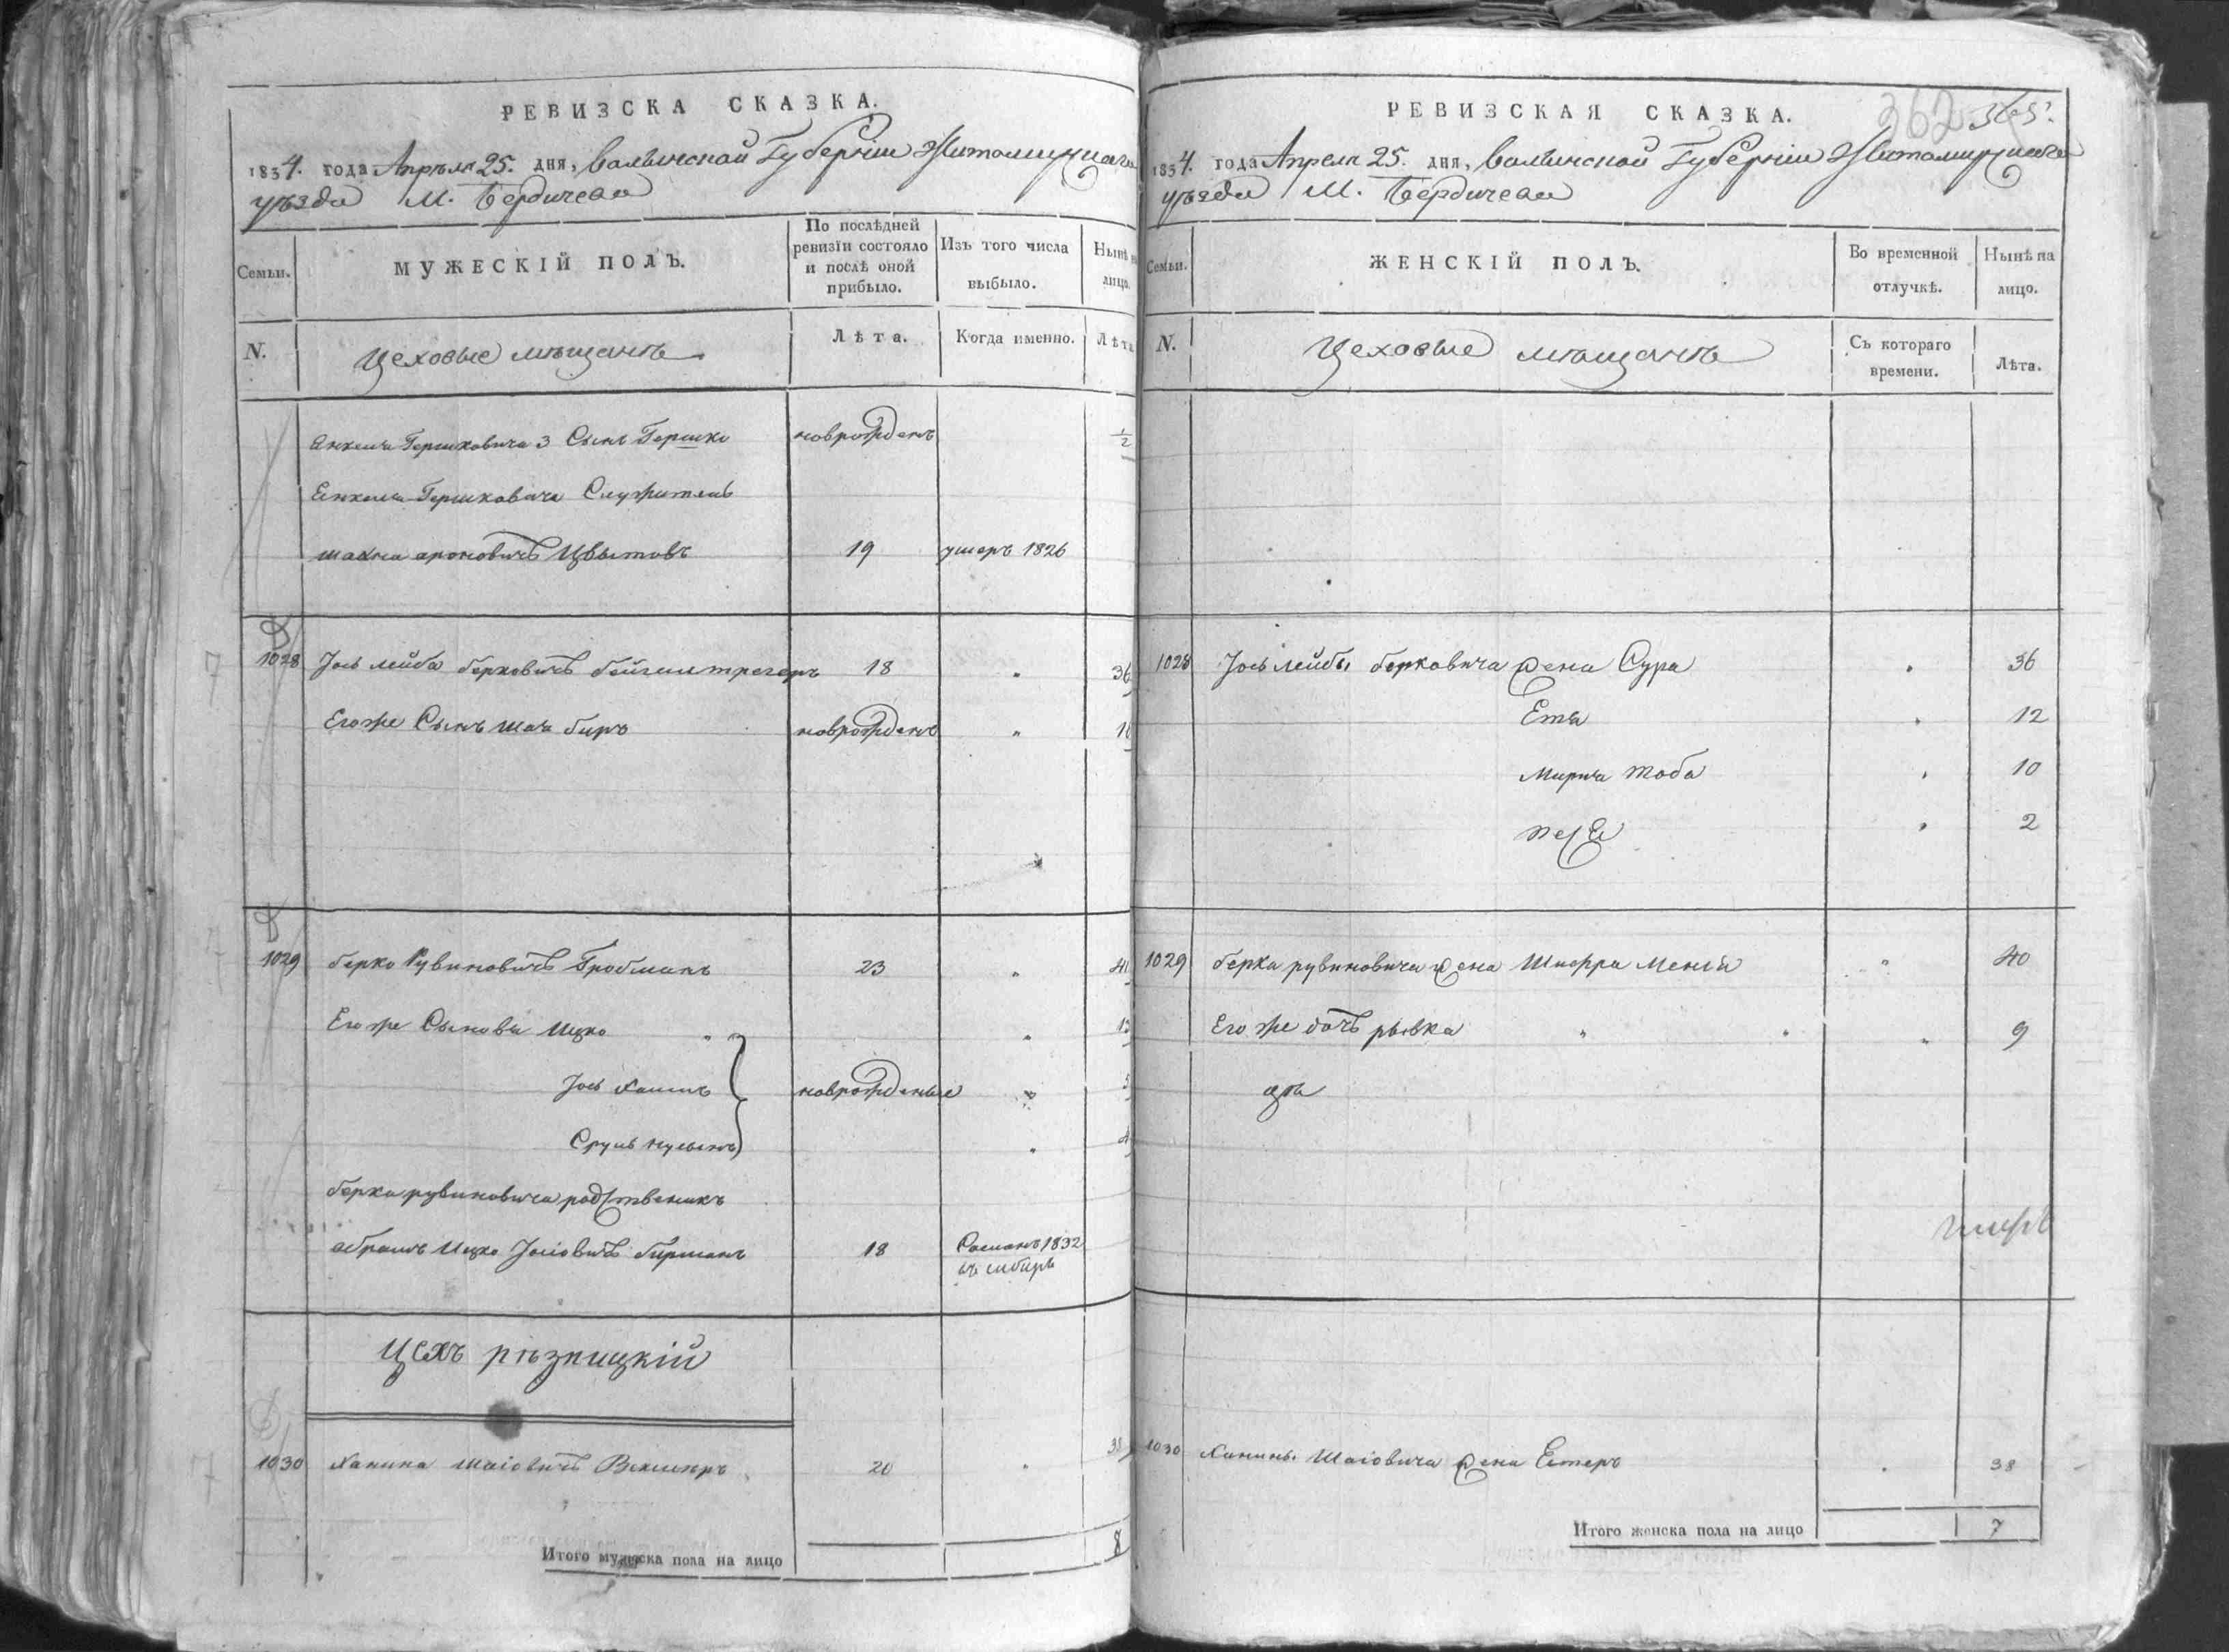 РЕВИЗСКА СКАЗКА.
1834. года Апрѣля 25. дня, Волынской Губерніи Житомирскаго
уѣзда М. Бердичева
Семьи.
МУЖЕСКІЙ ПОЛЪ.
По послѣдней
ревизіи состояло
и послѣ оной
прибыло.
Изъ того числа
выбыло.
Нынѣ на
лицо.
N.
Цеховые мѣщанѣ
Лѣта.
Когда именно.
Лѣта
Янкеля Гершковича 3 Сынъ Гершко новрожденъ 1/2
Янкеля Гершковича Служитель
шахна ароновичъ 19 умеръ 1826
1028 Іось лейба берковичъ бейгельтрегеръ 18 " 36
Его же Сынъ биръ новрожденъ " 10
1029 берко Рувиновичъ Гробманъ 23 "
Его же Сыновя Ицко " "
Іось Хаимъ новрожденые "
Сруль нусынъ "
берка рувиновича родственикъ
абрамъ Ицко Іосіовичъ бирманъ 18 Сосланъ 1832
въ сибирь
Цехъ рѣзницкій
1030 Ханина Шаіовичъ 20 " 38
Итого мужеска пола на лицо 8
РЕВИЗСКАЯ СКАЗКА.
362
1834. года Апреля 25. дня, Волынской Губерніи Житомирскаго
уѣзда М. Бердичева
Семьи.
ЖЕНСКІЙ ПОЛЪ.
Во временной
отлучкѣ.
Нынѣ на
лицо.
N.
Цеховые мѣщанѣ
Съ котораго
времени.
Лѣта.
1028 Іось Лейбы берковича жена Сура " 36
Етя " 12
Мирля тоба " 10
" 2
1029 берка рувиновича жена Шифра Меня " 40
Его же дочь рывка " " " 9
1030 Ханины Шаіовича жена Естеръ " 38
Итого женска пола на лицо 7